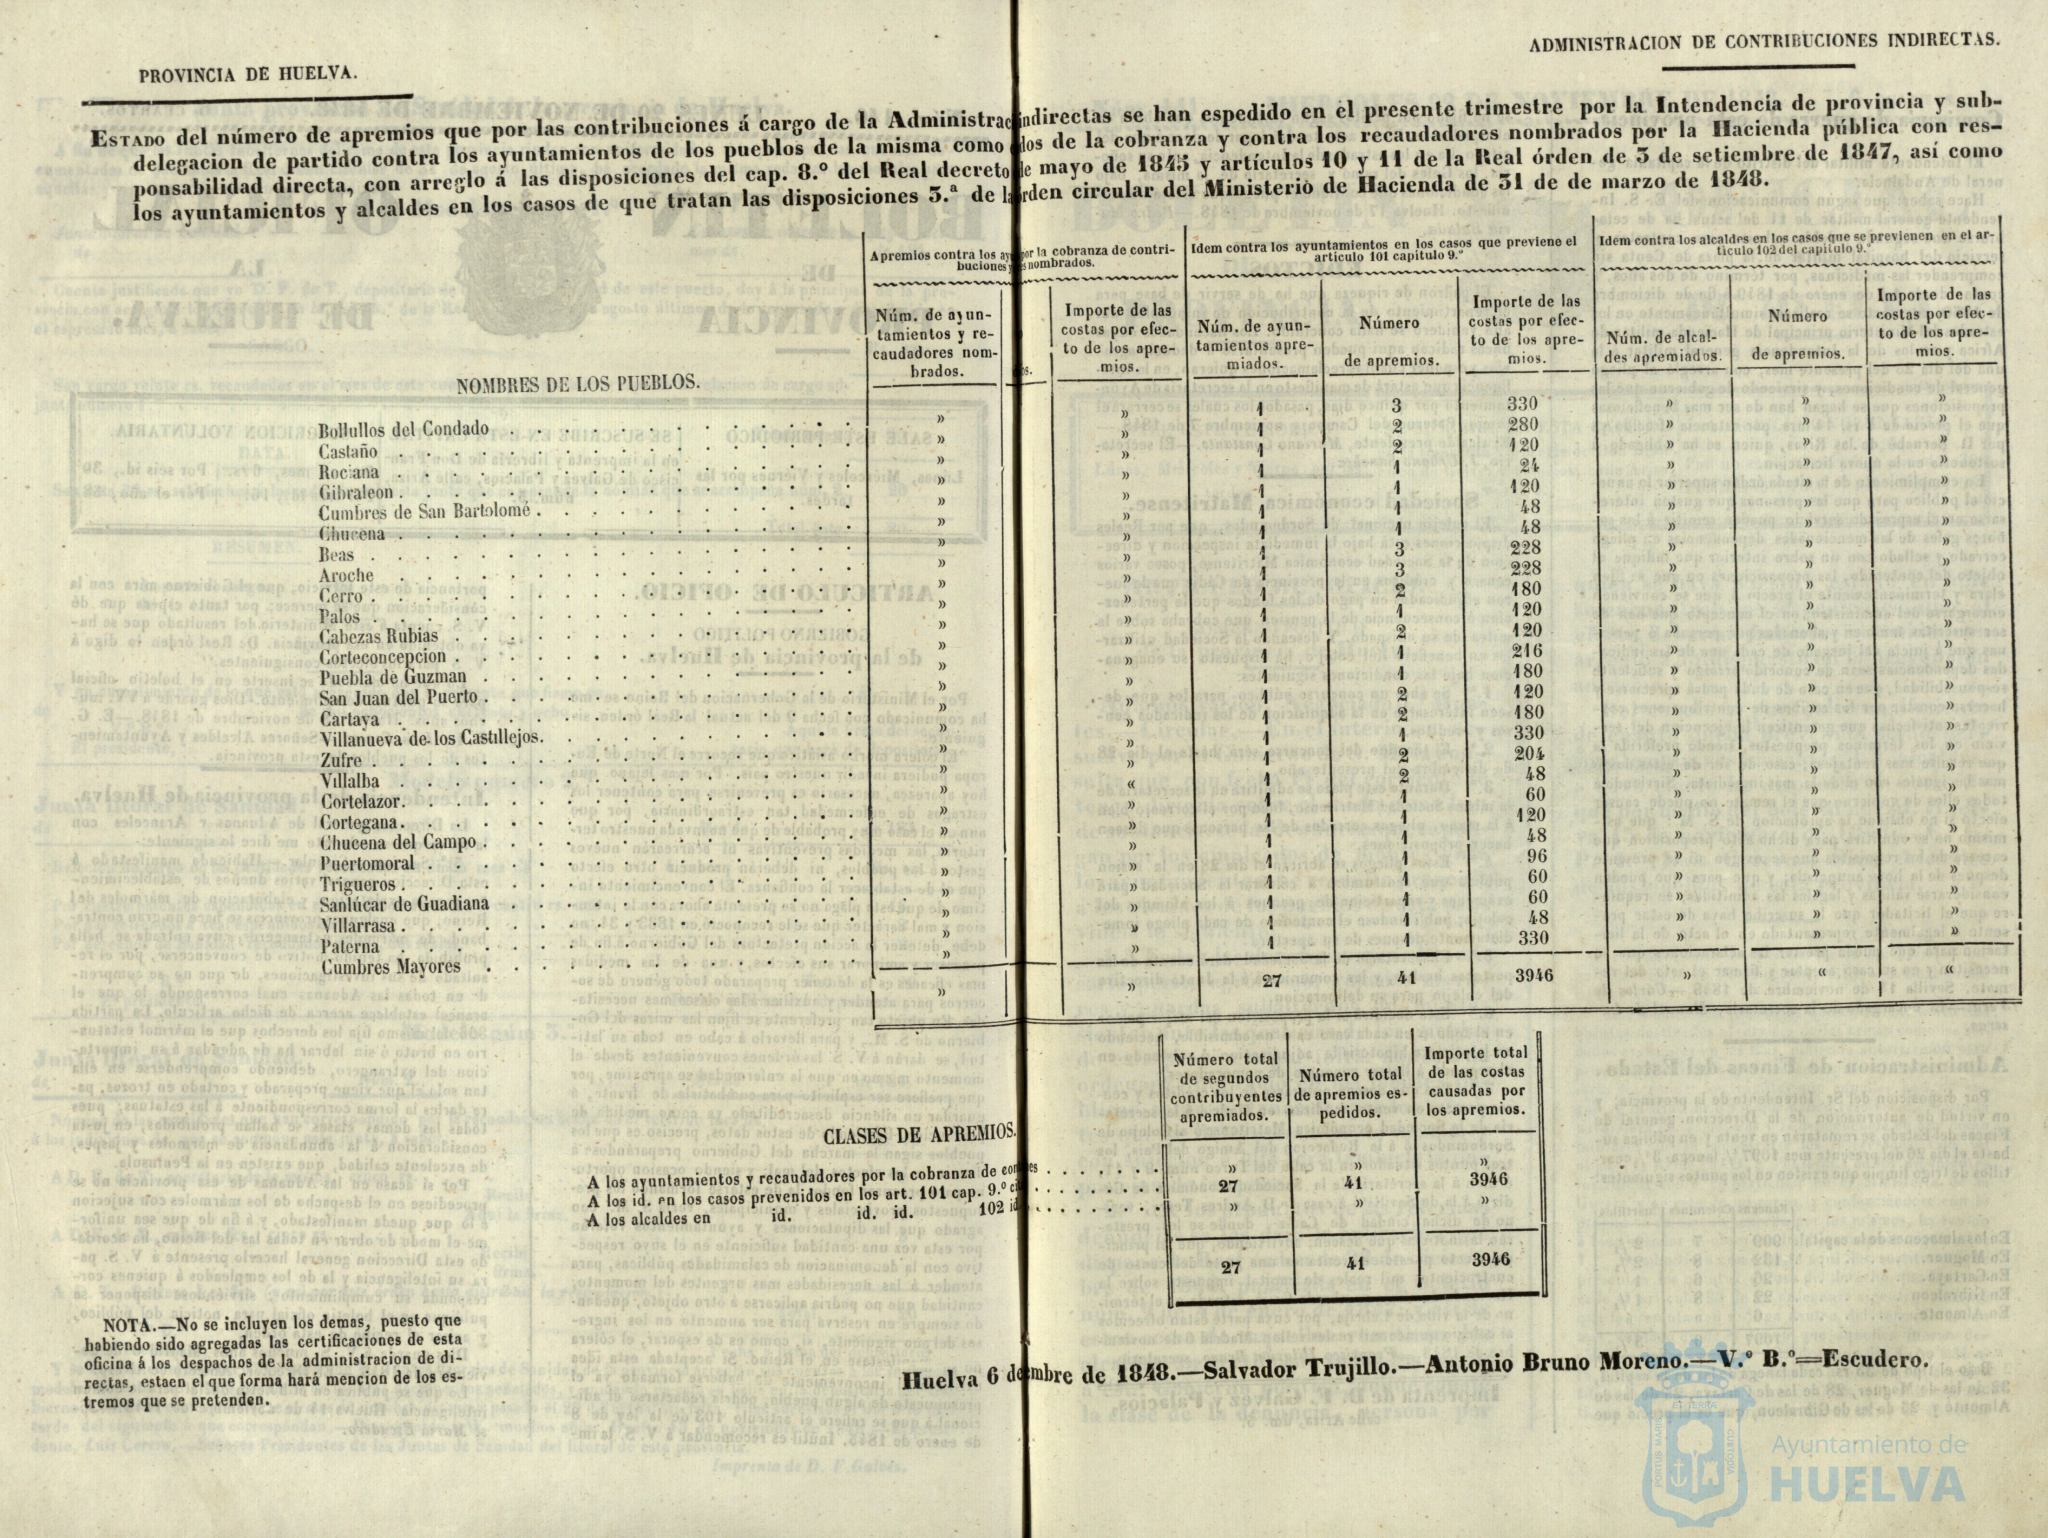 PROVINCIA DE HUELVA.
ADMINISTRACION DE CONTRIBUCIONES INDIRECTAS.
ESTADO del número de apremios que por las contribuciones á cargo de la Administrac indirectas se han espedido en el presente trimestre por la Intendencia de provincia y sub-
delegacion de partido contra los ayuntamientos de los pueblos de la misma como dos de la cobranza y contra los recaudadores nombrados por la Hacienda pública con res-
ponsabilidad directa, con arreglo á las disposiciones del cap. 8.º del Real decreto de mayo de 1845 y artículos 10 y 11 de la Real órden de 3 de setiembre de 1847, así como
los ayuntamientos y alcaldes en los casos de que tratan las disposiciones 3.ª de la orden circular del Ministerio de Hacienda de 31 de de marzo de 1848.
Apremios contra los ay por la cobranza de contri-
buciones y nombrados.
Idem contra los ayuntamientos en los casos que previene el
artículo 101 capítulo 9.º
Idem contra los alcaldes en los casos que se previenen en el ar-
tículo 102 del capítulo 9.º
NOMBRES DE LOS PUEBLOS.
Núm. de ayun-
tamientos y re-
caudadores nom-
brados.
os.
Importe de las
costas por efec-
to de los apre-
mios.
Núm. de ayun-
tamientos apre-
miados.
Número
de apremios.
Importe de las
costas por efec-
to de los apre-
mios.
Núm. de alcal-
des apremiados.
Número
de apremios.
Importe de las
costas por efec-
to de los apre-
mios.
Bollullos del Condado » » 1 3 330 » » »
Castaño » » 1 2 280 » » »
Rociana » » 1 2 120 » » »
Gibraleon » » 1 1 24 » » »
Cumbres de San Bartolomé » » 1 1 120 » » »
Chucena » » 1 1 48 » » »
Beas » » 1 1 48 » » »
Aroche » » 1 3 228 » » »
Cerro » » 1 3 228 » » »
Palos » » 1 2 180 » » »
Cabezas Rubias » » 1 1 120 » » »
Corteconcepcion » » 1 2 120 » » »
Puebla de Guzman » » 1 1 216 » » »
San Juan del Puerto » » 1 1 180 » » »
Cartaya » » 1 2 120 » » »
Villanueva de los Castillejos. » » 1 2 180 » » »
Zufre » » 1 1 330 » » »
Villalba » » 1 2 204 » » »
Cortelazor. » « 1 2 48 » » »
Cortegana. » » 1 1 60 » » »
Chucena del Campo » » 1 1 120 » » »
Puertomoral » » 1 1 48 » » »
Trigueros » » 1 1 96 » » »
Sanlúcar de Guadiana » » 1 1 60 » » »
Villarrasa » » 1 1 60 » » »
Paterna » » 1 1 48 » » »
Cumbres Mayores » » 1 1 330 » » »
» » 27 41 3946 » « «
CLASES DE APREMIOS.
Número total
de segundos
contribuyentes
apremiados.
Número total
de apremios es-
pedidos.
Importe total
de las costas
causadas por
los apremios.
A los ayuntamientos y recaudadores por la cobranza de con es » » »
A los id. en los casos prevenidos en los art. 101 cap. 9.º 27 41 3946
A los alcaldes en id. id. id. 102 id » » »
27 41 3946
NOTA.—No se incluyen los demas, puesto que
habiendo sido agregadas las certificaciones de esta
oficina á los despachos de la administracion de di-
rectas, estaen el que forma hará mencion de los es-
tremos que se pretenden.
Huelva 6 de mbre de 1848.—Salvador Trujillo.—Antonio Bruno Moreno.—V.º B.º=Escudero.
Ayuntamiento de
HUELVA